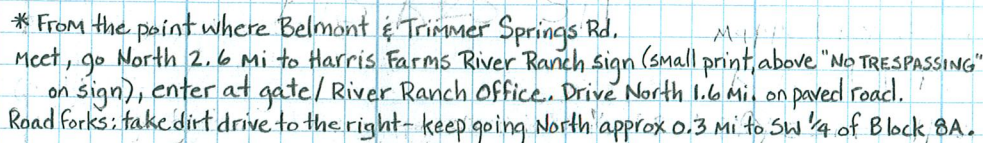 * From the point where Belmont & Trimmer Springs Rd.
Meet, go North 2.6 Mi to Harris Farms River Ranch sign (small print, above "NO TRESPASSING"
on sign), enter at gate/River Ranch Office. Drive North 1.6 Mi. on paved road.
Road forks; take dirt drive to the right - keep going North approx 0.3 Mi to SW 1/4 of Block 8A.